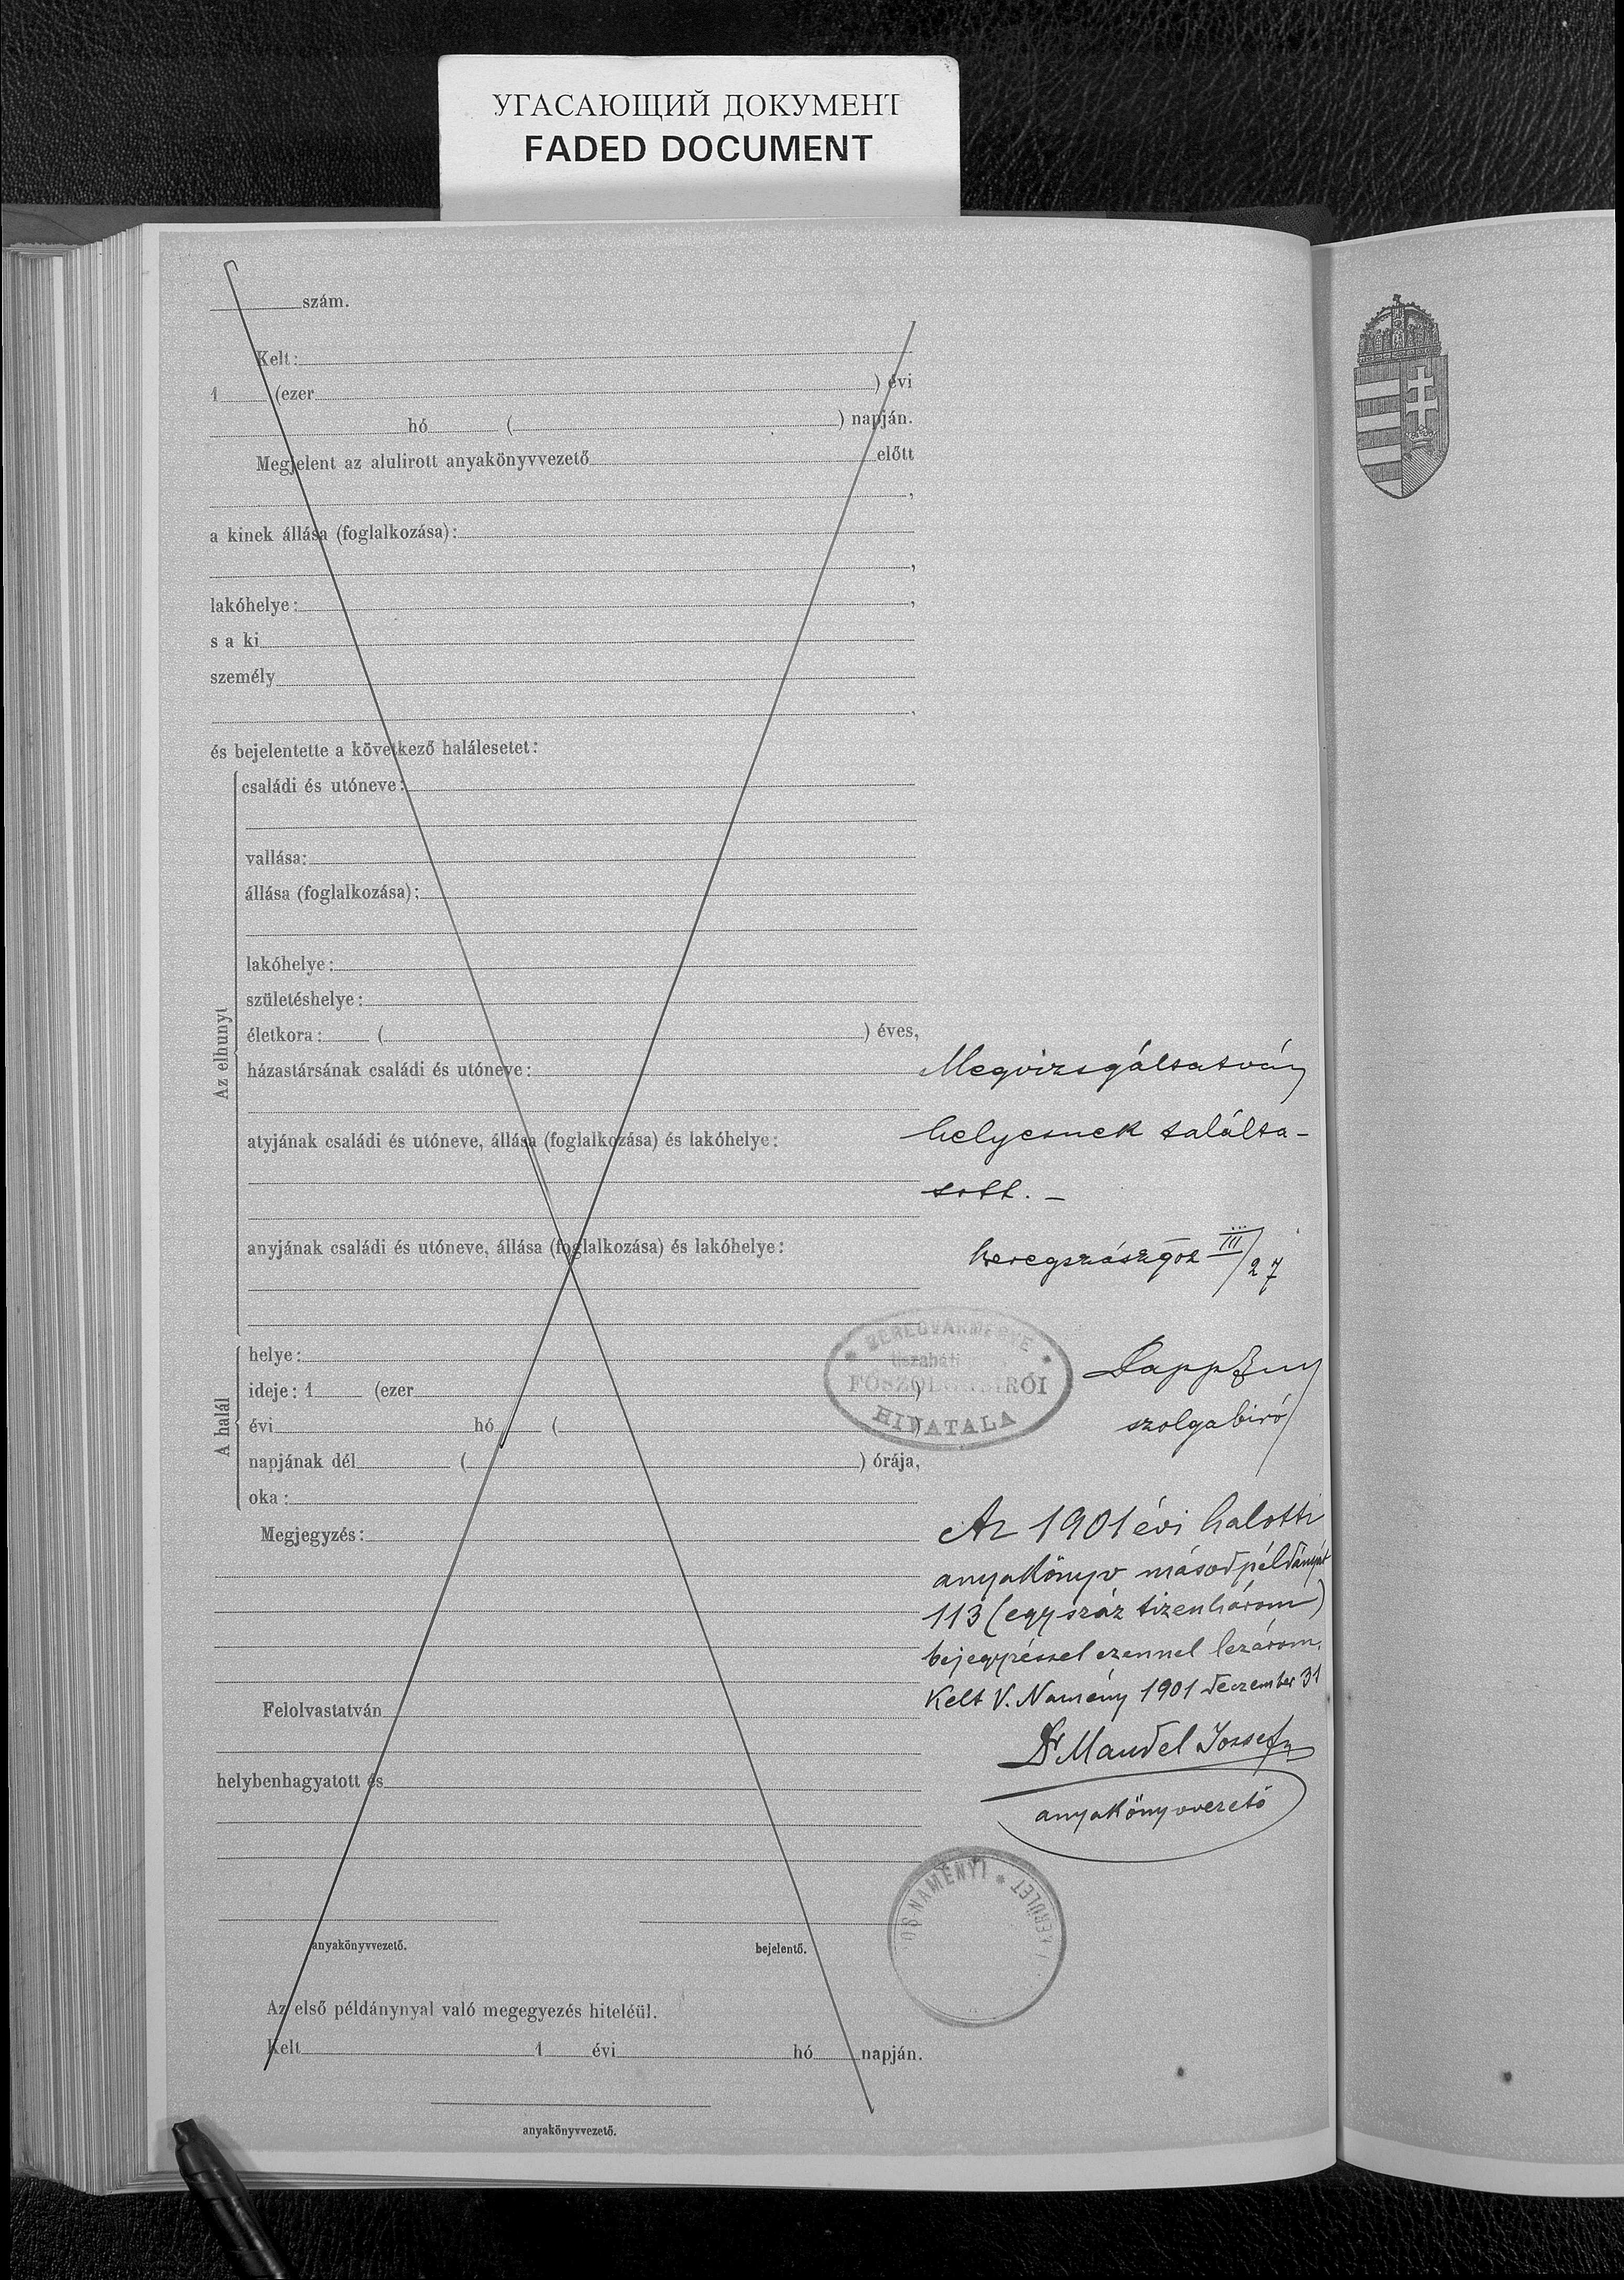 УГАСАЮЩИЙ ДОКУМЕНТ
FADED DOCUMENT
szám.
Kelt:
1 (ezer ) évi
hó ( ) napján.
Megjelent az alulirott anyakönyvvezető előtt
,
a kinek állása (foglalkozása):
,
lakóhelye: ,
s a ki
személy
és bejelentette a következő halálesetet:
Az elhunyt
családi és utóneve:
vallása:
állása (foglalkozása):
lakóhelye:
születéshelye:
életkora: ( ) éves,
házastársának családi és utóneve:
atyjának családi és utóneve, állása (foglalkozása) és lakóhelye:
anyjának családi és utóneve, állása (foglalkozása) és lakóhelye:
A halál
helye:
ideje: 1 (ezer )
évi hó ( )
napjának dél ( ) órája,
oka:
Megjegyzés:
Felolvastatván
helybenhagyatott és
anyakönyvvezető. bejelentő.
Az első példánynyal való megegyezés hiteléül.
Kelt 1 évi hó napján.
anyakönyvvezető.
Megvizsgáltatván
helyesnek találta-
tott. –
Beregszász 902 III/27
BEREGVÁRMEGYE
tiszaháti
FŐSZOLGABIRÓI
HIVATALA
szolgabiró
Az 1901 évi halotti
anyakönyv másodpéldányát
113 (egyszáz tizenhárom)
bejegyzéssel ezennel lezárom.
Kelt V. Namény 1901 deczember 31
Dr Mandel József
anyakönyvvezető
NAMÉNYI * KERÜLET